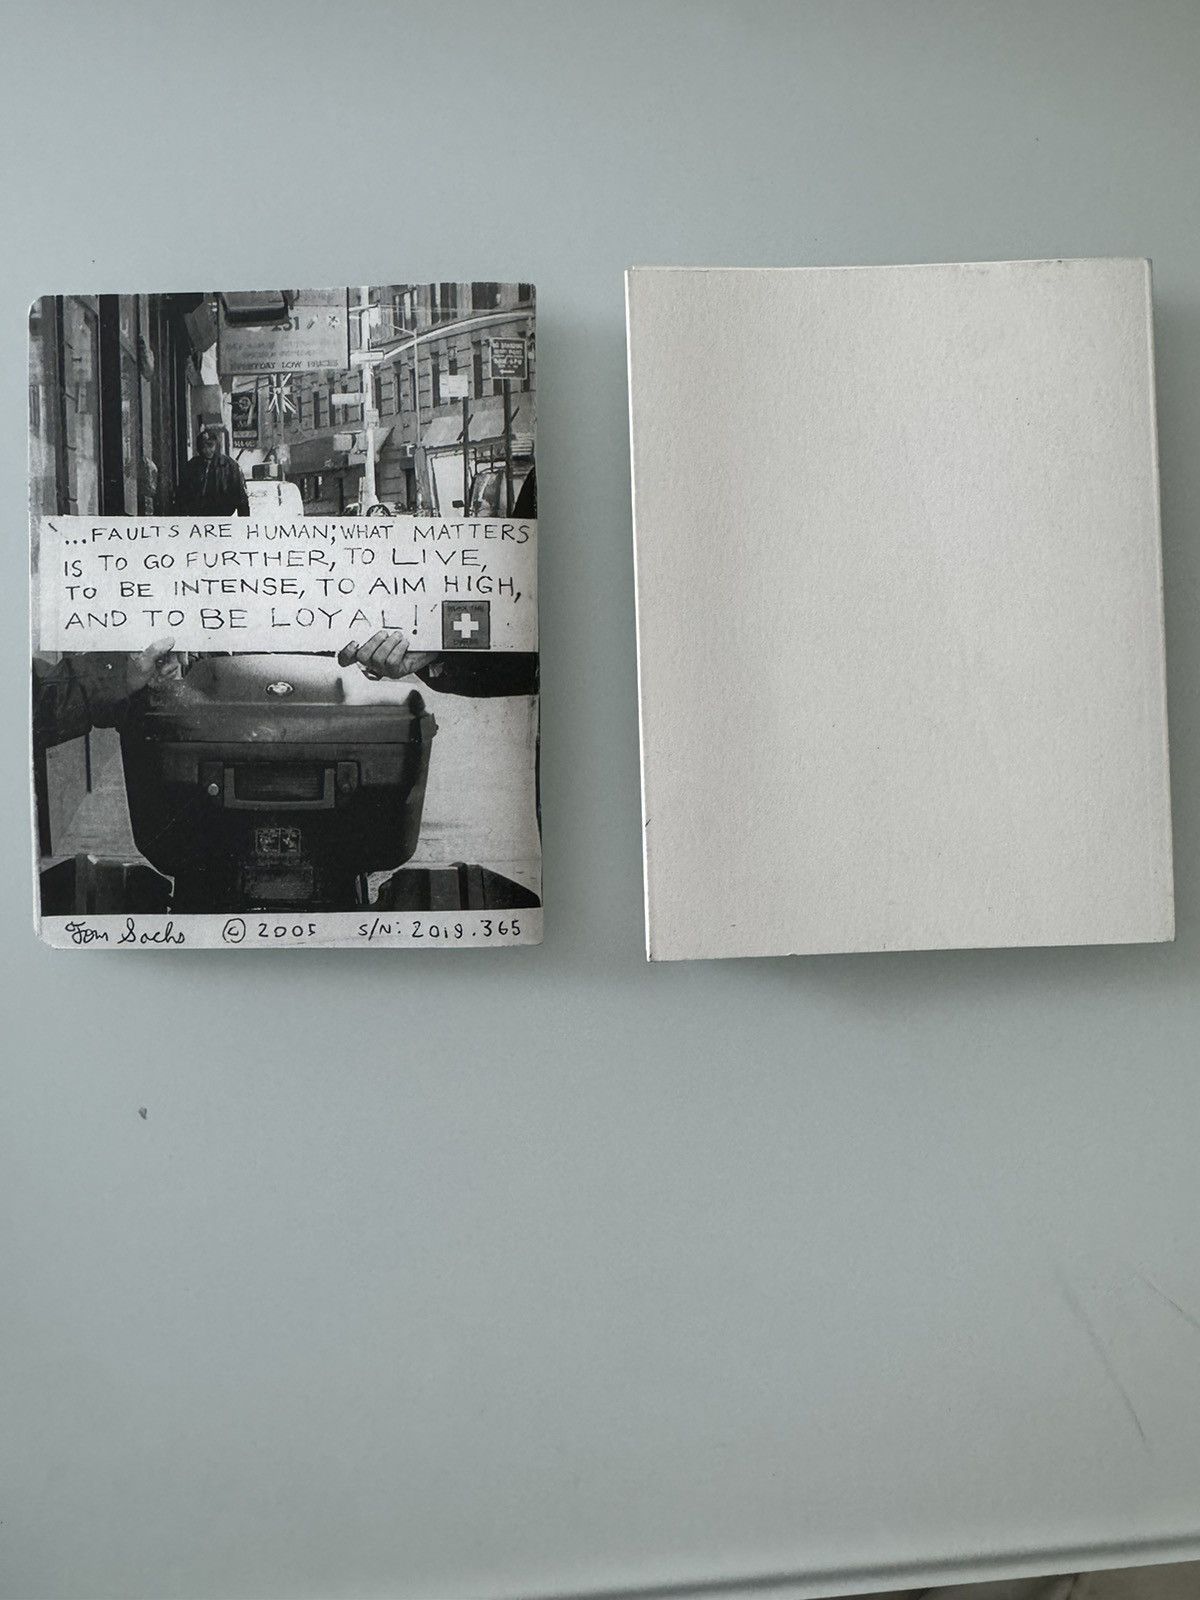 251
EVERYDAY LOW PRICES
"...FAULTS ARE HUMAN; WHAT MATTERS
IS TO GO FURTHER, TO LIVE,
TO BE INTENSE, TO AIM HIGH,
AND TO BE LOYAL!"
Tom Sachs © 2005 S/N: 2019.365